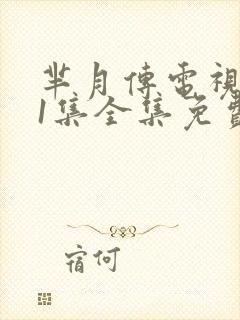 芈月傳電視
1集全集免費
宿何